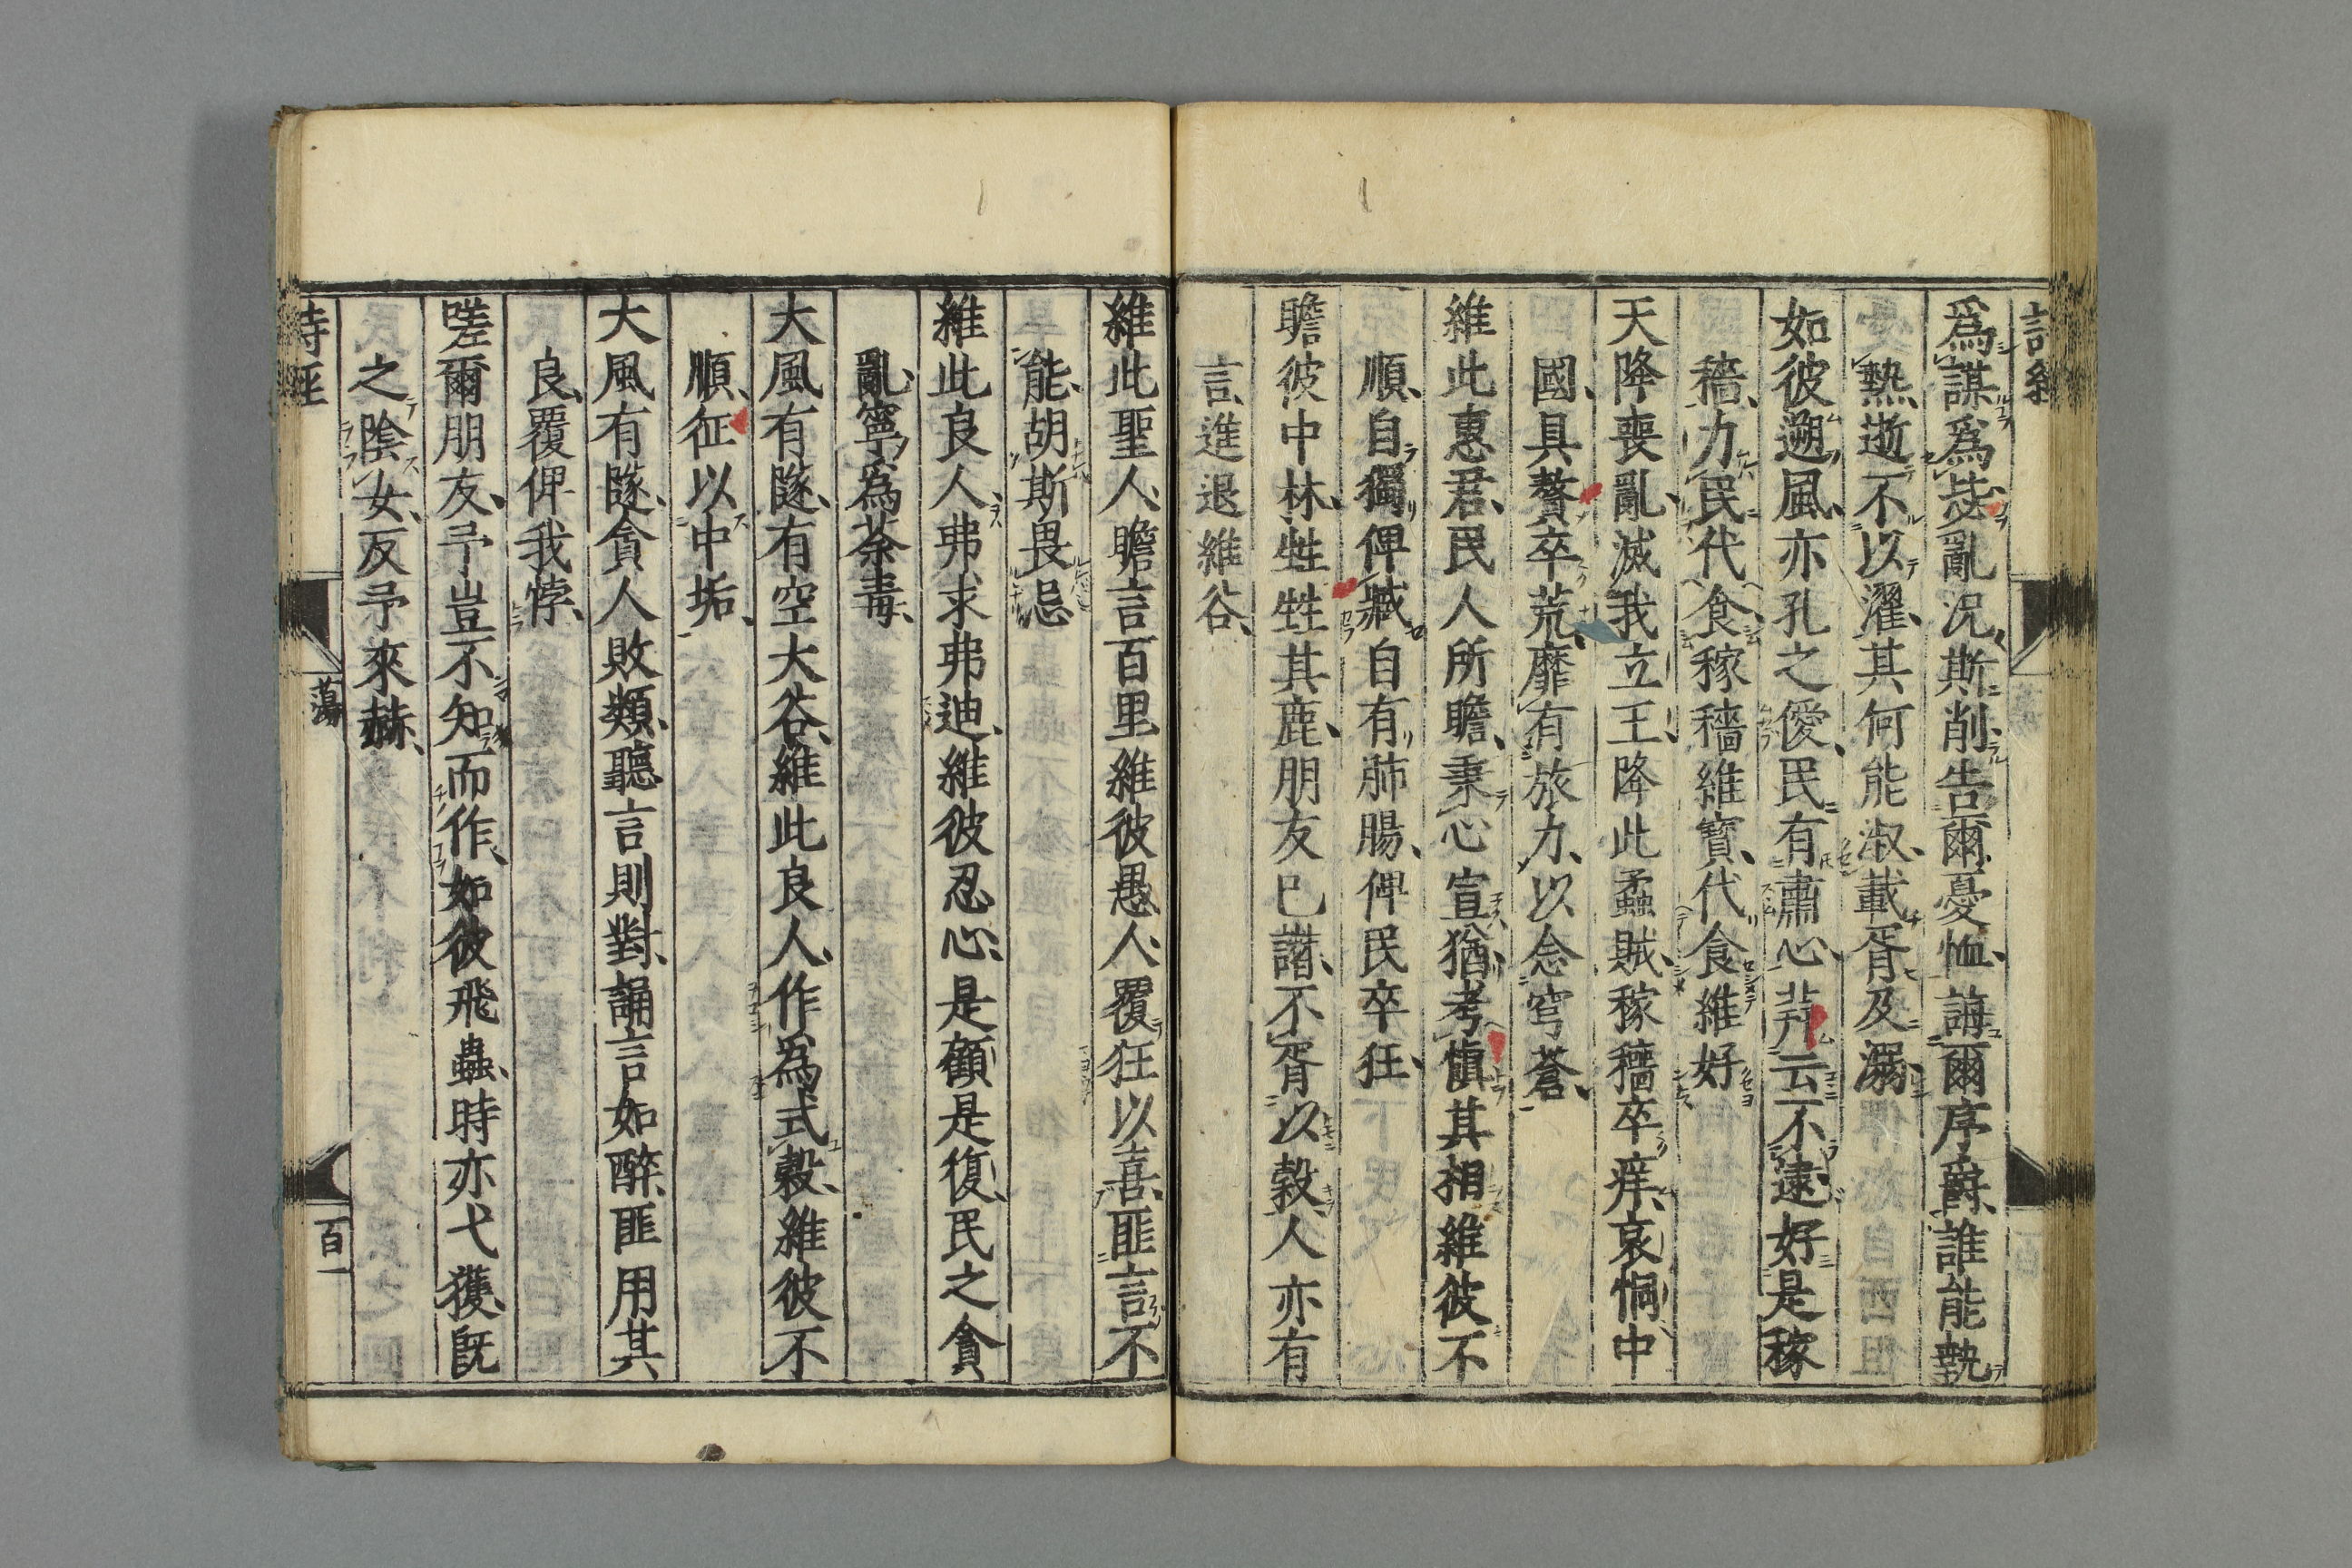 詩經
爲謀爲毖亂況斯削告爾憂恤誨爾序爵誰能執
熱逝不以濯其何能淑載胥及溺
如彼遡風亦孔之僾民有肅心荓云不逮好是稼
穡力民代食稼穡維寳代食維好
天降喪亂滅我立王降此蟊賊稼穡卒痒哀恫中
國具贅卒荒靡有旅力以念穹蒼
維此惠君民人所瞻秉心宣猶考愼其相維彼不
順自獨俾臧自有肺腸俾民卒狂
瞻彼中林甡甡其鹿朋友已譖不胥以穀人亦有
言進退維谷
維此聖人瞻言百里維彼愚人覆狂以喜匪言不
能胡斯畏忌
維此良人弗求弗迪維彼忍心是顧是復民之貪
亂寧爲荼毒
大風有隧有空大谷維此良人作爲式穀維彼不
順征以中垢
大風有隧貪人敗類聽言則對誦言如醉匪用其
良覆俾我悖
嗟爾朋友予豈不知而作如彼飛蟲時亦弋獲旣
之陰女反予來赫
詩經
蕩
百一